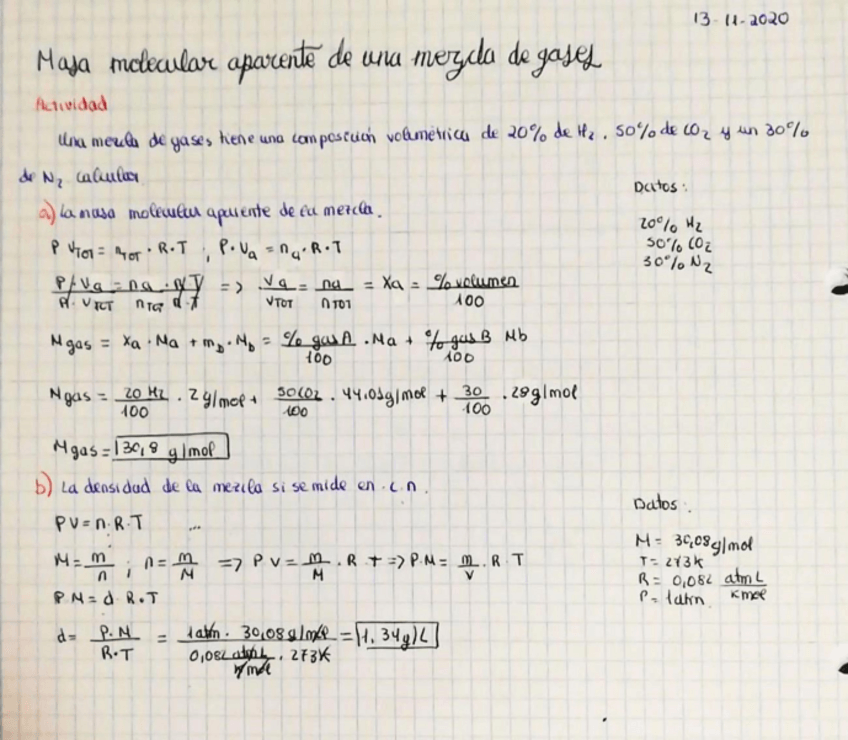 13-11-2020
Masa molecular aparente de una mezcla de gases
Actividad
Una mezcla de gases tiene una composición volumétrica de 20% de H₂, 50% de CO₂ y un 30%
de N₂ calcular
Datos:
a) La masa molecular aparente de la mezcla.
20% H₂
50% CO₂
30% N₂
P V_TOT = n_TOT · R · T ; P · V_a = n_a · R · T
P · V_a / P · V_TOT = n_a · R T / n_TOT R · T => V_a / V_TOT = n_a / n_TOT = X_a = % volumen / 100
M gas = X_a · M_a + m_b · M_b = % gas A / 100 · M_a + % gas B / 100 M_b
M gas = 20 H₂ / 100 · 2 g/mol + 50 CO₂ / 100 · 44.01 g/mol + 30 / 100 · 28 g/mol
M gas = 30,8 g/mol
b) La densidad de la mezcla si se mide en c.n.
Datos:
PV = n · R · T ...
M = m / n ; n = m / M => P V = m / M · R T => P · M = m / V · R T
M = 30,08 g/mol
T = 273 K
R = 0,082 atm L / K mol
P = 1 atm
P · M = d · R · T
d = P · M / R · T = 1 atm · 30,08 g/mol / 0,082 atm L / K mol · 273 K = 1.34 g/L